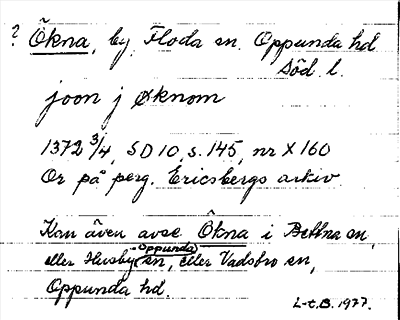 ? Ökna, by, Floda sn. Oppunda hd
Söd. l.
joon j øknom
1372 3/4, SD 10, s. 145, nr X 160
Or på perg. Ericsbergs arkiv
Kan även avse Ökna i Bettna sn,
eller Husby-Oppunda sn, eller Vadsbro sn,
Oppunda hd.
L-t.B. 1977.